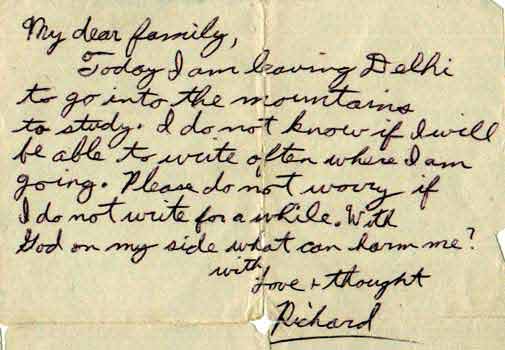 My dear family,
Today I am leaving Delhi
to go into the mountains
to study. I do not know if I will
be able to write often where I am
going. Please do not worry if
I do not write for a while. With
God on my side what can harm me?
with
Love + thought
Richard